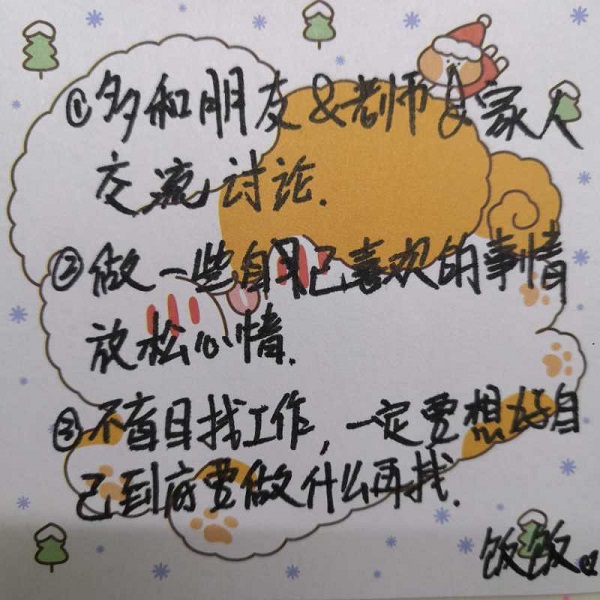 ①多和朋友&老师&家人
交流讨论.
②做一些自己喜欢的事情
放松心情.
③不盲目找工作,一定要想好自
己到底要做什么再找.
饭饭.